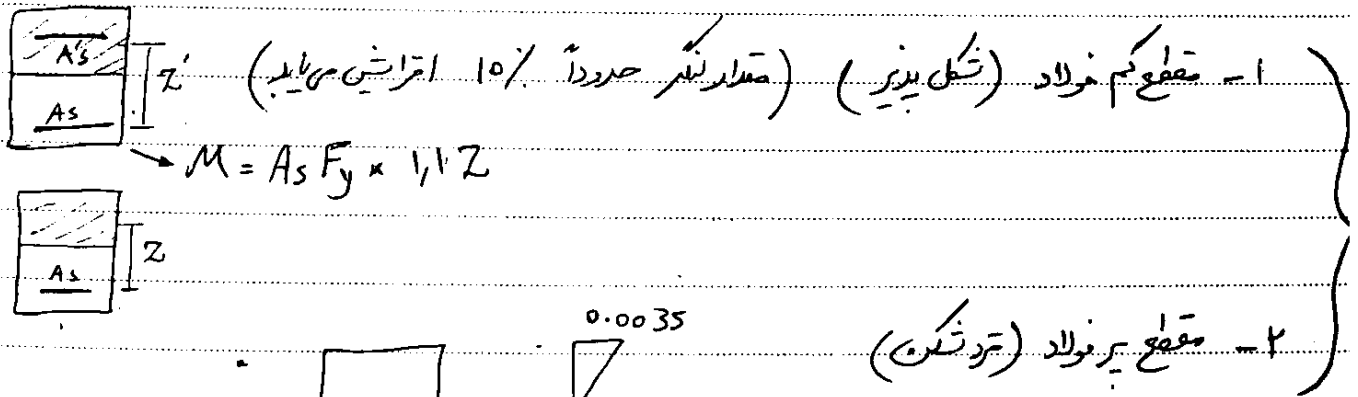 ۱- مقطع کم فولاد (شکل پذیر) (مقدار لنگر حدوداً ۱۵٪ افزایش می‌یابد)
A's
Z'
As
M = As Fy × 1,1 Z
Z
As
0.0035
۲- مقطع پر فولاد (ترد شکن)